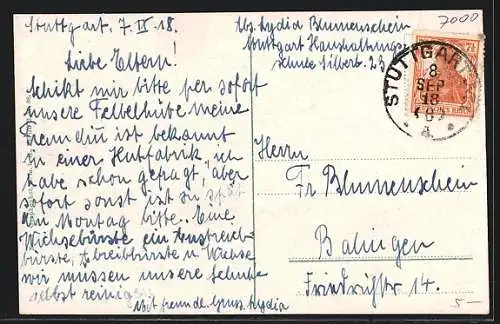 Stuttgart. 7. IX. 18.
Liebe Eltern!
Schickt mir bitte per sofort
unsere Felbelhüte meine
Freundin ist bekannt
in einer Hutfabrik, ich
habe schon gefragt, aber
sofort sonst ist zu spät
am Montag bitte. Eine
Wichsebürste ein Anstreich-
bürste, Abreibbürste u. Wichse
wir müssen unsere Schuhe
selbst reinigen
Mit freundl. Gruss Lydia
Abs. Lydia Blumenschein
Stuttgart Haushaltungs-
schule Silberb. 23
7000
STUTTGART
8
SEP
18
Herrn
Fr. Blumenschein
Balingen
Friedrichstr 14.
5-